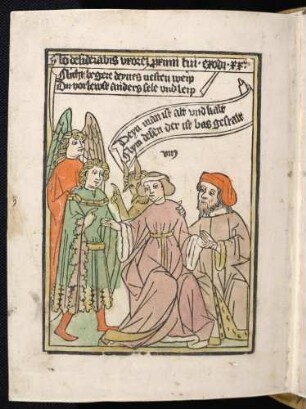 No desiderabis vxorez primi tui · exodi · xx°
Nicht beger deyns nesten weip
Du vorlewst anders sele vnd leip
Deyn man ist alt vnd kalt
Nym desen der ist bas gestalt